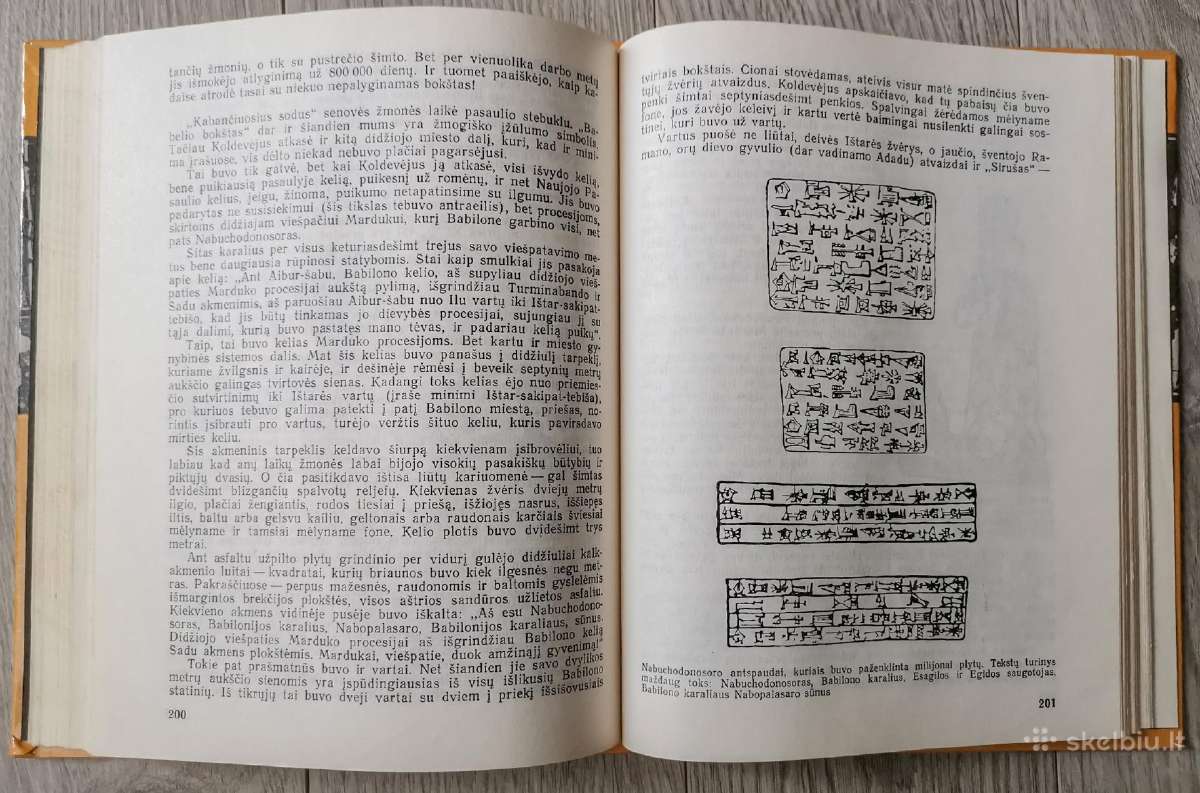 tančių žmonių, o tik su pustrečio šimto. Bet per vienuolika darbo metų
jis išmokėjo atlyginimą už 800 000 dienų. Ir tuomet paaiškėjo, kaip ka-
daise atrodė tasai su niekuo nepalyginamas bokštas!
„Kabančiuosius sodus“ senovės žmonės laikė pasaulio stebuklu. „Ba-
belio bokštas“ dar ir šiandien mums yra žmogiško įžūlumo simbolis.
Tačiau Koldevėjus atkasė ir kitą didžiojo miesto dalį, kuri, kad ir mini-
ma įrašuose, vis dėlto niekad nebuvo plačiai pagarsėjusi.
Tai buvo tik gatvė, bet kai Koldevėjus ją atkasė, visi išvydo kelią,
bene puikiausią pasaulyje kelią, puikesnį už romėnų, ir net Naujojo Pa-
saulio kelius, jeigu, žinoma, puikumo netapatinsime su ilgumu. Jis buvo
padarytas ne susisiekimui (šis tikslas tebuvo antraeilis), bet procesijoms,
skirtoms didžiajam viešpačiui Mardukui, kurį Babilone garbino visi, net
pats Nabuchodonosoras.
Šitas karalius per visus keturiasdešimt trejus savo viešpatavimo me-
tus bene daugiausia rūpinosi statybomis. Štai kaip smulkiai jis pasakoja
apie kelią: „Ant Aibur-šabu, Babilono kelio, aš supyliau didžiojo vieš-
paties Marduko procesijai aukštą pylimą, išgrindžiau Turminabando ir
Šadu akmenimis, aš paruošiau Aibur-šabu nuo Ilu vartų iki Ištar-sakipat-
tebišo, kad jis būtų tinkamas jo dievybės procesijai, sujungiau jį su
tąja dalimi, kurią buvo pastatęs mano tėvas, ir padariau kelią puikų“.
Taip, tai buvo kelias Marduko procesijoms. Bet kartu ir miesto gy-
nybinės sistemos dalis. Mat šis kelias buvo panašus į didžiulį tarpeklį,
kuriame žvilgsnis ir kairėje, ir dešinėje rėmėsi į beveik septynių metrų
aukščio galingas tvirtovės sienas. Kadangi toks kelias ėjo nuo priemies-
čio sutvirtinimų iki Ištarės vartų (įraše minimi Ištar-sakipat-tebiša),
pro kuriuos tebuvo galima patekti į patį Babilono miestą, priešas, no-
rintis įsibrauti pro vartus, turėjo veržtis šituo keliu, kuris pavirsdavo
mirties keliu.
Šis akmeninis tarpeklis keldavo šiurpą kiekvienam įsibrovėliui, tuo
labiau kad anų laikų žmonės labai bijojo visokių pasakiškų būtybių ir
piktųjų dvasių. O čia pasitikdavo ištisa liūtų kariuomenė — gal šimtas
dvidešimt blizgančių spalvotų reljefų. Kiekvienas žvėris dviejų metrų
ilgio, plačiai žengiantis, rodos tiesiai į priešą, išžiojęs nasrus, iššiepęs
iltis, baltu arba gelsvu kailiu, geltonais arba raudonais karčiais šviesiai
mėlyname ir tamsiai mėlyname fone. Kelio plotis buvo dvidešimt trys
metrai.
Ant asfaltu užpilto plytų grindinio per vidurį gulėjo didžiuliai kalk-
akmenio luitai — kvadratai, kurių briaunos buvo kiek ilgesnės negu met-
ras. Pakraščiuose — perpus mažesnės, raudonomis ir baltomis gyslelėmis
išmargintos brekčijos plokštės, visos aštrios sandūros užlietos asfaltu.
Kiekvieno akmens vidinėje pusėje buvo iškalta: „Aš esu Nabuchodono-
soras, Babilonijos karalius, Nabopalasaro, Babilonijos karaliaus, sūnus.
Didžiojo viešpaties Marduko procesijai aš išgrindžiau Babilono kelią
Šadu akmens plokštėmis. Mardukai, viešpatie, duok amžinąjį gyvenimą!“
Tokie pat prašmatnūs buvo ir vartai. Net šiandien jie savo dvylikos
metrų aukščio sienomis yra įspūdingiausias iš visų išlikusių Babilono
statinių. Iš tikrųjų tai buvo dveji vartai su dviem į priekį išsišovusiais
200
tvirtais bokštais. Čionai stovėdamas, ateivis visur matė spindinčius šven-
tųjų žvėrių atvaizdus. Koldevėjus apskaičiavo, kad tų pabaisų čia buvo
penki šimtai septyniasdešimt penkios. Spalvingai žėrėdamos mėlyname
fone, jos žavėjo keleivį ir kartu vertė baimingai nusilenkti galingai sos-
tinei, kuri buvo už vartų.
Vartus puošė ne liūtai, deivės Ištarės žvėrys, o jaučio, šventojo Ra-
mano, orų dievo gyvulio (dar vadinamo Adadu) atvaizdai ir „Sirušas“ —
Nabuchodonosoro antspaudai, kuriais buvo paženklinta milijonai plytų. Tekstų turinys
maždaug toks: Nabuchodonosoras, Babilono karalius, Esagilos ir Egidos saugotojas,
Babilono karaliaus Nabopalasaro sūnus
201
skelbiu.lt